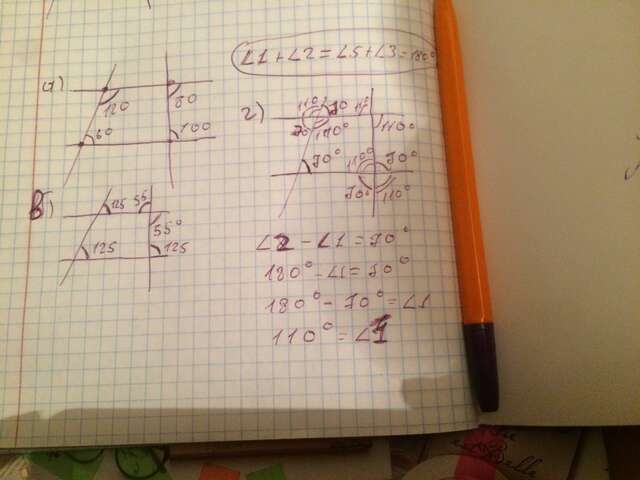 ∠1 + ∠2 = ∠5 + ∠3 = 180°
а)
120 80
60 100
в)
125 55
55°
125 125
г)
110° 70
70° 110° 110°
70° 110° 70°
70° 110°
∠2 - ∠1 = 70°
180° - ∠1 = 70°
180° - 70° = ∠1
110° = ∠1